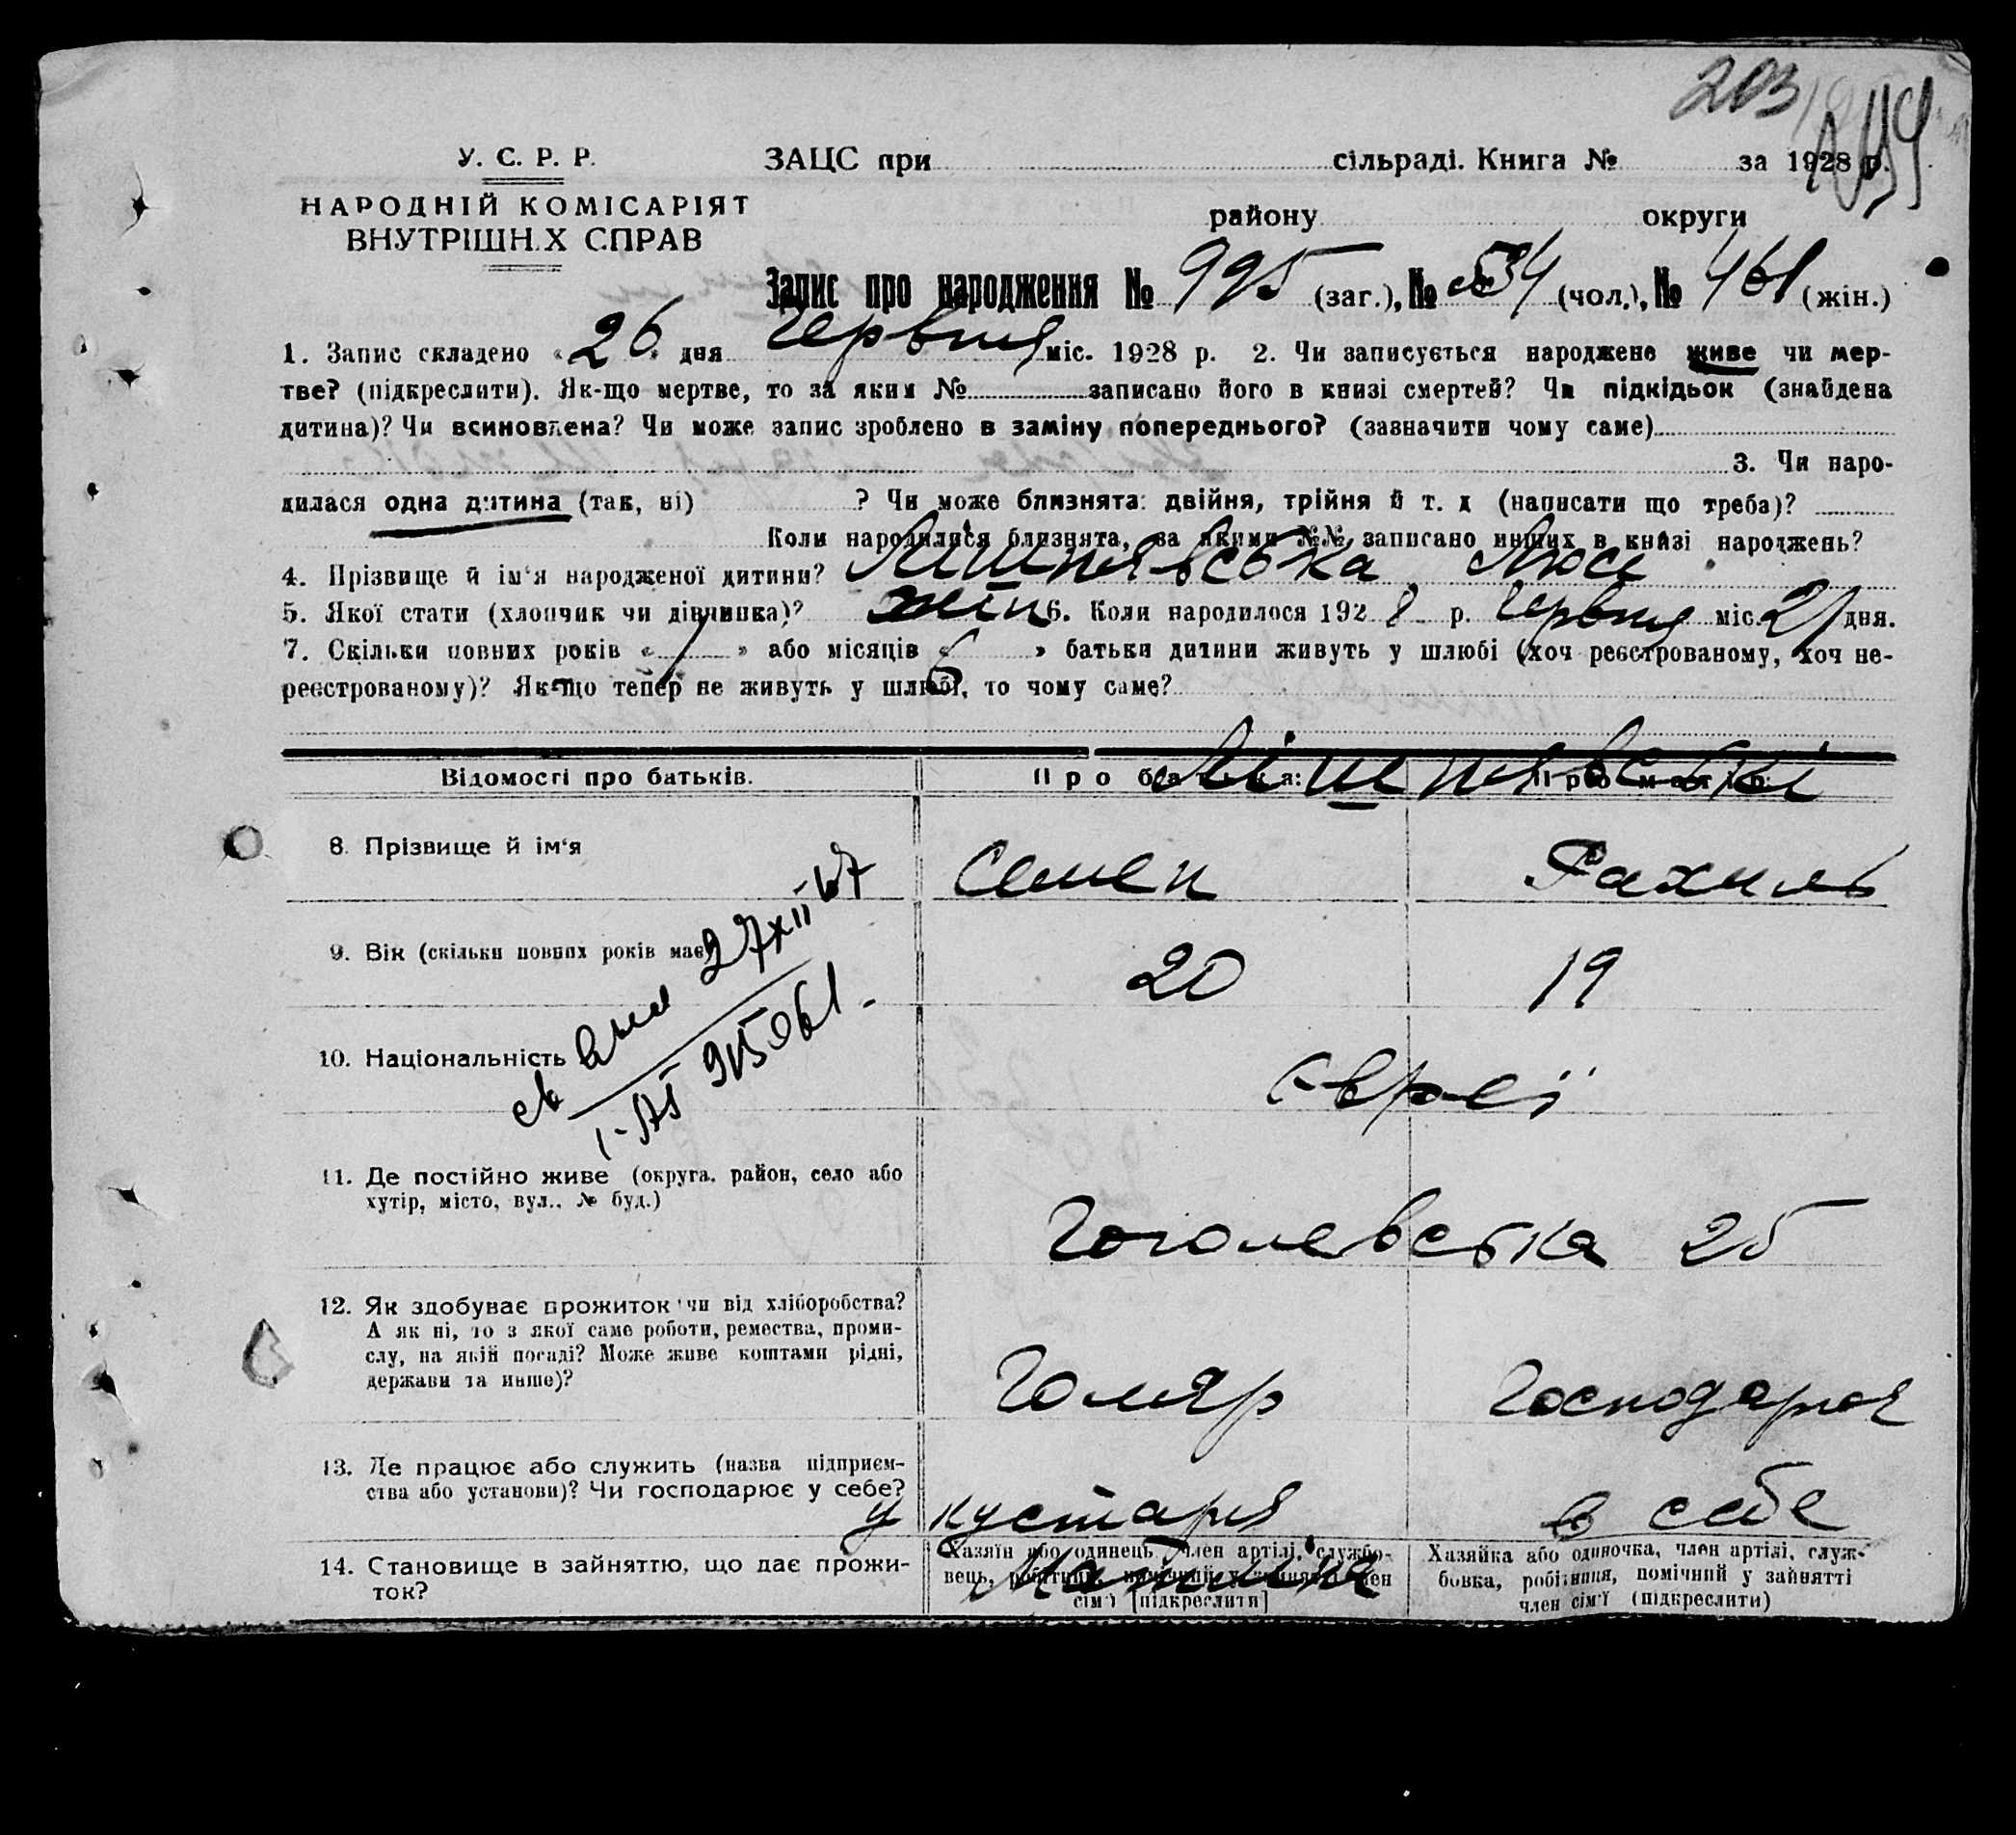 203
У. С. Р. Р.
ЗАЦС при сільраді. Книга № за 1928 р.
НАРОДНІЙ КОМІСАРІЯТ
ВНУТРІШН.Х СПРАВ
району округи
Запис про народження № 995 (заг.), № 534 (чол.), № 461 (жін.)
1. Запис складено «26» дня Червня міс. 1928 р. 2. Чи записується народжене живе чи мер-
тве? (підкреслити). Як-що мертве, то за яким № записано його в книзі смертей? Чи підкідьок (знайдена
дитина)? Чи всиновлена? Чи може запис зроблено в заміну попереднього? (зазначити чому саме)
3. Чи наро-
дилася одна дитина (так, ні) ? Чи може близнята: двійня, трійня й т. д (написати що треба)?
Коли народилися близнята, за якими №№ записано инших в книзі народжень?
4. Прізвище й ім'я народженої дитини? Лішнявська Люся
5. Якої стати (хлопчик чи дівчинка)? жін 6. Коли народилося 1928 р. Червня міс. 21 дня.
7. Скільки повних років «1» або місяців «6» батьки дитини живуть у шлюбі (хоч реєстрованому, хоч не-
реєстрованому)? Як-що тепер не живуть у шлюбі, то чому саме?
Відомості про батьків. Про батька: Про матір:
Лішнявські
8. Прізвище й ім'я Семен Рахиль
9. Вік (скільки повних років має) 20 19
27 XII 67
10. Національність Євреї
I-АБ 915061.
11. Де постійно живе (округа, район, село або
хутір, місто, вул., № буд.) Гоголевська 25
12. Як здобуває прожиток чи від хліборобства?
А як ні, то з якої саме роботи, ремества, проми-
слу, на якій посаді? Може живе коштами рідні,
держави та инше)? Голяр Господарює
13. Де працює або служить (назва підприєм-
ства або установи)? Чи господарює у себе? у кустаря в себе
14. Становище в зайняттю, що дає прожи-
ток?
Хазяїн або одинець, член артілі, службо-
вець, робітник, помічний у зайнятті член
сім'ї [підкреслити]
Хазяйка або одиночка, член артілі, служ-
бовка, робітниця, помічний у зайнятті
член сім'ї (підкреслити)